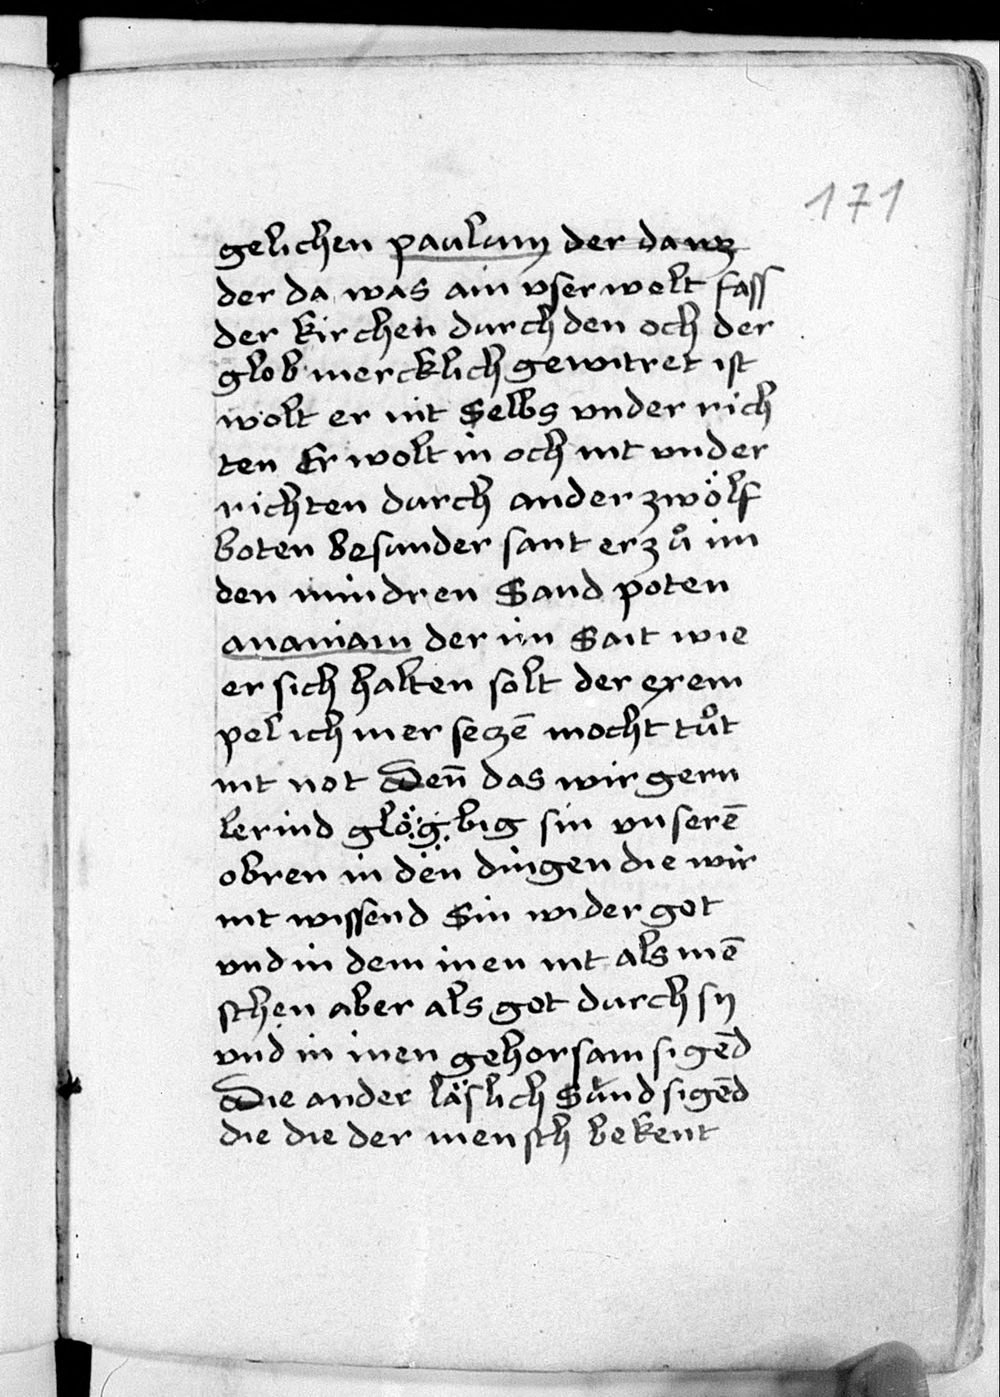 171
gelichen paulum der danz
der da was ain vserwelt fass
der kirchen durch den och der
glob mercklich gewitret ist
wolt er nit Selbs vnder rich
ten Er wolt in och nit vnder
richten durch ander zwölf
boten besunder sant er zů im
den mindren Sand poten
ananiam der im Sait wie
er sich halten solt der exem
pel ich mer seczē mocht tůt
nit not Den̄ das wir gern
lerind glög big sin vnserē
obren in den dingen die wir
nit wissend Sin wider got
vnd in dem inen nit als mē
schen aber als got durch sy
vnd in inen gehorsam sigēd
Die ander läslich Sünd sigēd
die die der mensch bekent